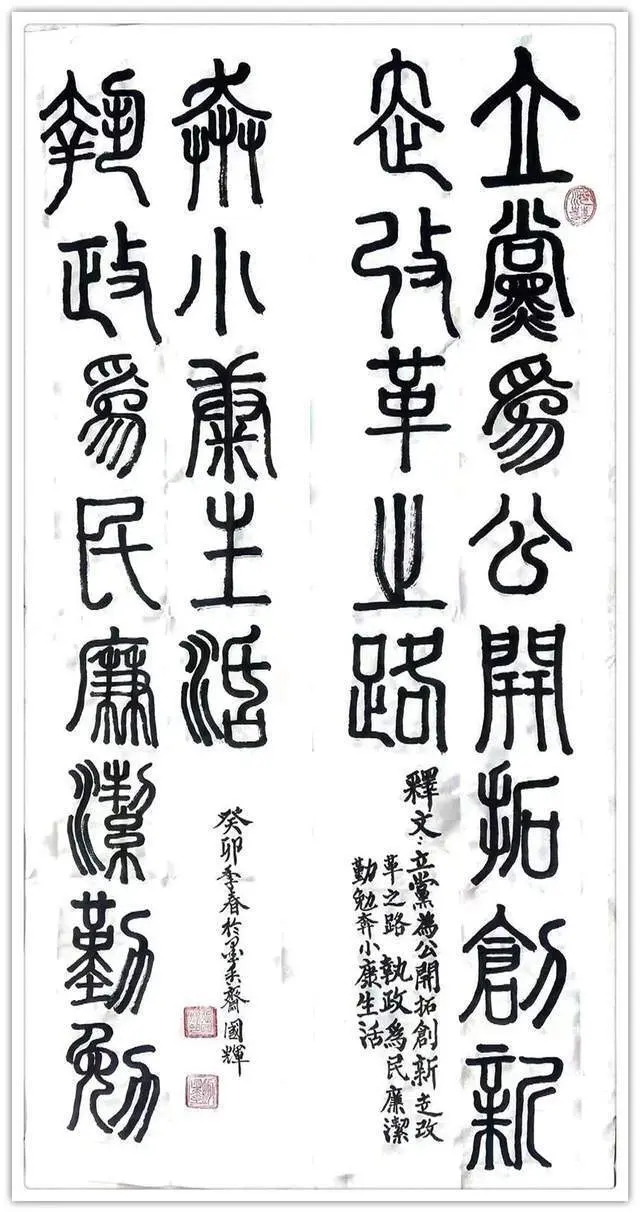 立黨爲公開拓創新
走改革之路
釋文：立黨為公開拓創新走改
革之路 執政為民廉潔
勤勉奔小康生活
執政爲民廉潔勤勉
奔小康生活
癸卯季春於墨香齋國輝